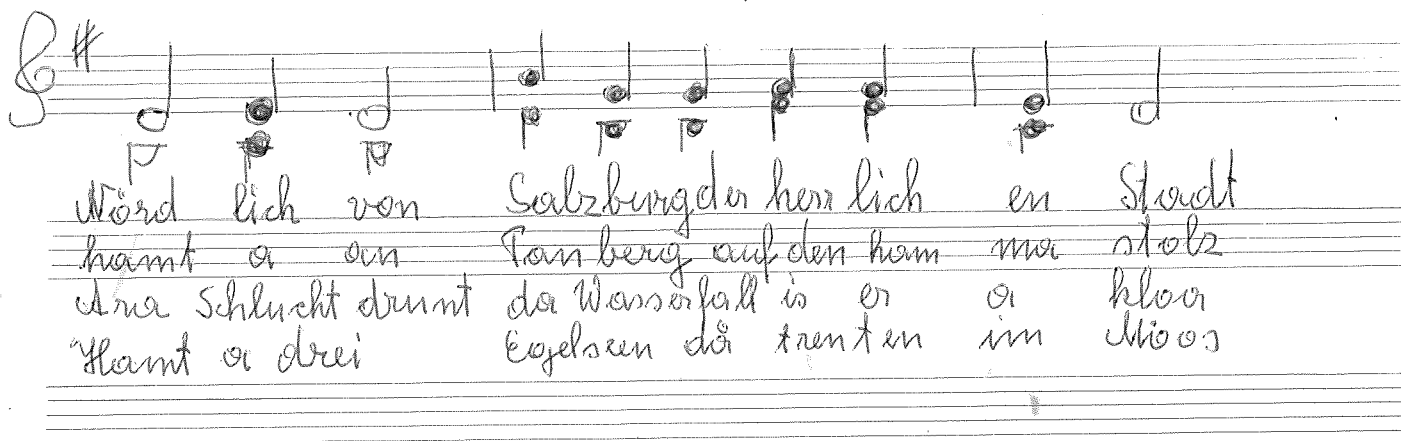 Nörd lich von Salzburg der herr lich en Stadt
hamt a an Tanberg auf den ham ma stolz
Ana Schlucht drunt da Wasserfall is er a kloa
Hamt a drei Egelseen då trenten im Moos